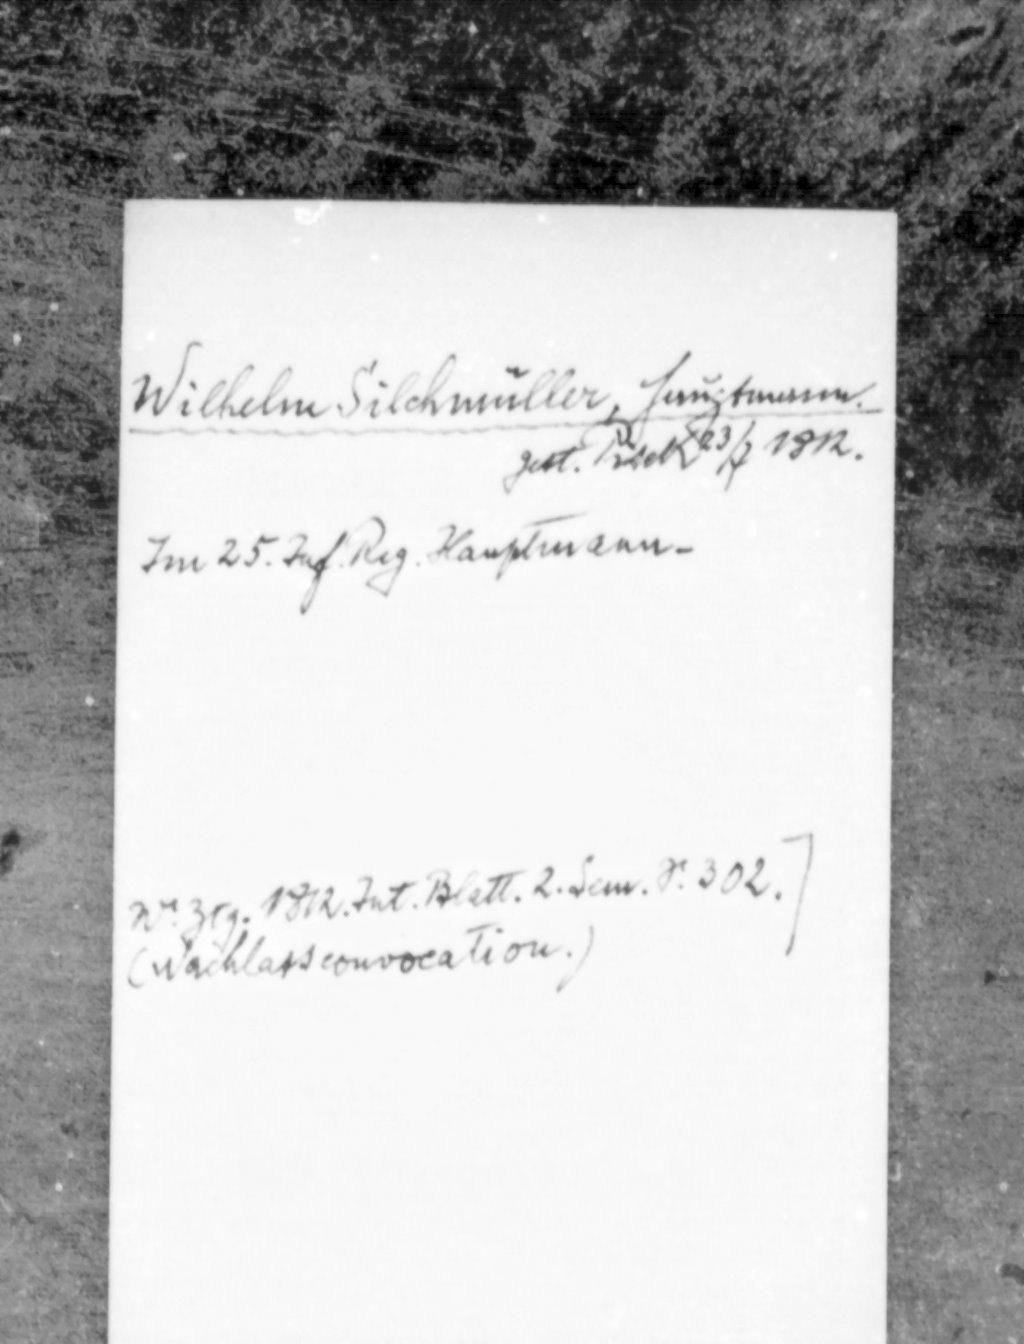 Wilhelm Silchmüller, Hauptmann.
gest. Pisek 23/7 1812.
Im 25. Inf. Reg. Hauptmann-
Wr. Ztg. 1812. Int. Blatt. 2. Sem. S. 302.]
(Nachlassconvocation.)